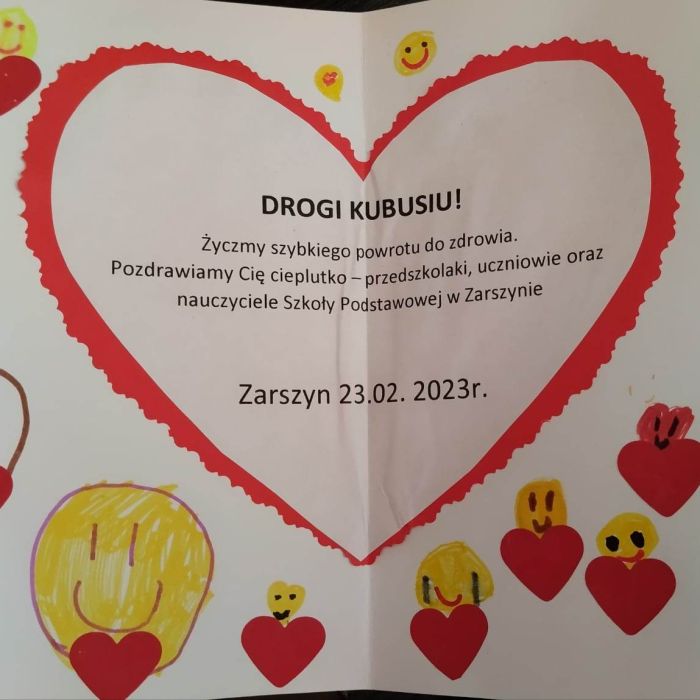 DROGI KUBUSIU!
Życzmy szybkiego powrotu do zdrowia.
Pozdrawiamy Cię cieplutko – przedszkolaki, uczniowie oraz
nauczyciele Szkoły Podstawowej w Zarszynie
Zarszyn 23.02. 2023r.